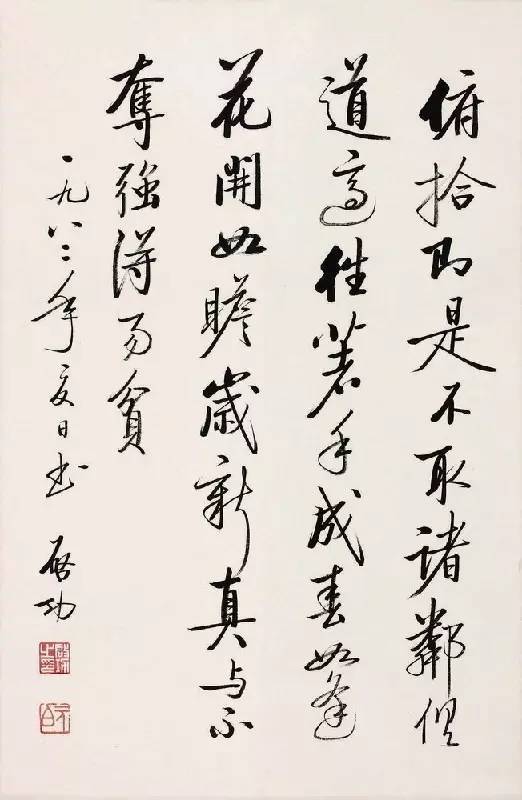 俯拾即是不取諸鄰俱
道適往著手成春如逢
花開如瞻歲新真与不
奪強得易貧
一九八二年夏日书 啟功
啟功之印
元白